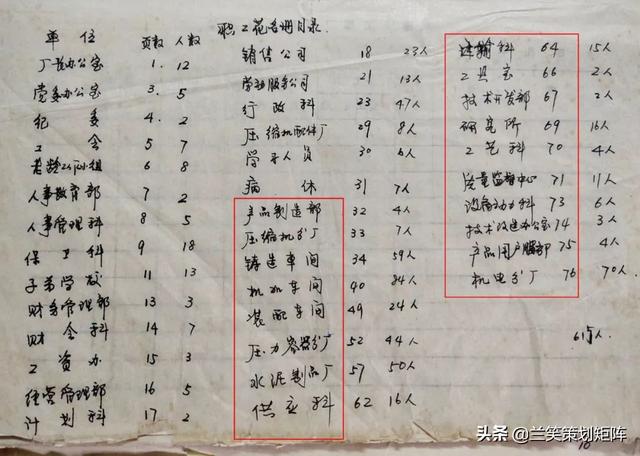 职工花名册目录
单位 页数 人数
厂长办公室 1. 12
党委办公室 3. 5
纪委 4. 2
工会 5 7
老龄工作小组 6 8
人事教育部 7 2
人事管理科 8 5
保卫科 9 18
子弟学校 11 13
财务管理部 13 3
财会科 14 7
工资办 15 3
经营管理部 16 5
计划科 17 2
销售公司 18 23人
劳动服务公司 21 13人
行政科 23 47人
压缩机配件厂 29 8人
学习人员 30 6人
病休 31 7人
产品制造部 32 4人
压缩机分厂 33 7人
铸造车间 34 59人
机加车间 40 84人
装配车间 49 24人
压力容器分厂 52 44人
水泥制品厂 57 50人
供应科 62 16人
运输科 64 15人
工具室 66 2人
技术开发部 67 2人
研究所 69 16人
工艺科 70 4人
质量监督中心 71 11人
设备动力科 73 6人
技术改造办公室 74 3人
产品用户服务部 75 4人
机电分厂 76 70人
615人
头条 @兰笑策划矩阵